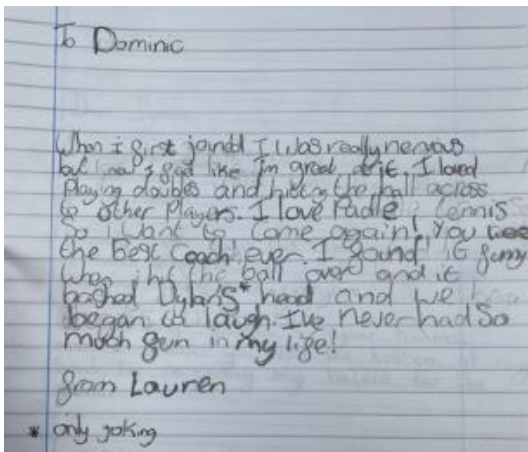 To Dominic
When i first joind I was really nervous
but now I feel like Im great at it. I loved
Playing doubles and hitting the ball across
to other Players. I love Padle tennis
So i want to come again! You were
the best coach ever. I found it funny
when i hit the ball over and it
bashed Dylan's* head and we
began to laugh. I've never had So
much fun in my life!
from Lauren
* only joking